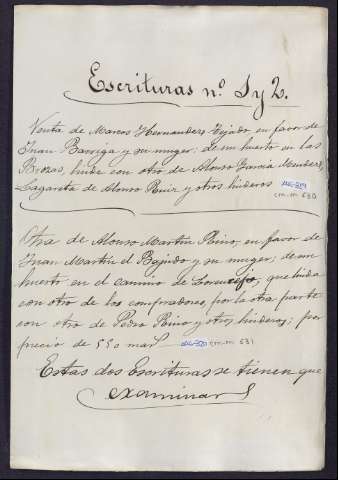 Escrituras nº 1 y 2.
Venta de Marcos Hernandez Tejado en favor de
Juan Barriga y su muger: de un huerto en las
Brozas, linde con otro de Alonso García Mendez,
Lagareta de Alonso Ruiz y otros linderos
cm.m 630
Otra de Alonso Martin Rino, en favor de
Juan Martin el Bajudo y su muger; de un
huerto en el camino de, que linda
con otro de los compradores, por la otra parte
con otro de Pedro Rino y otros linderos; por
precio de 550 mars cm.m 631
Estas dos Escrituras se tienen que
examinar